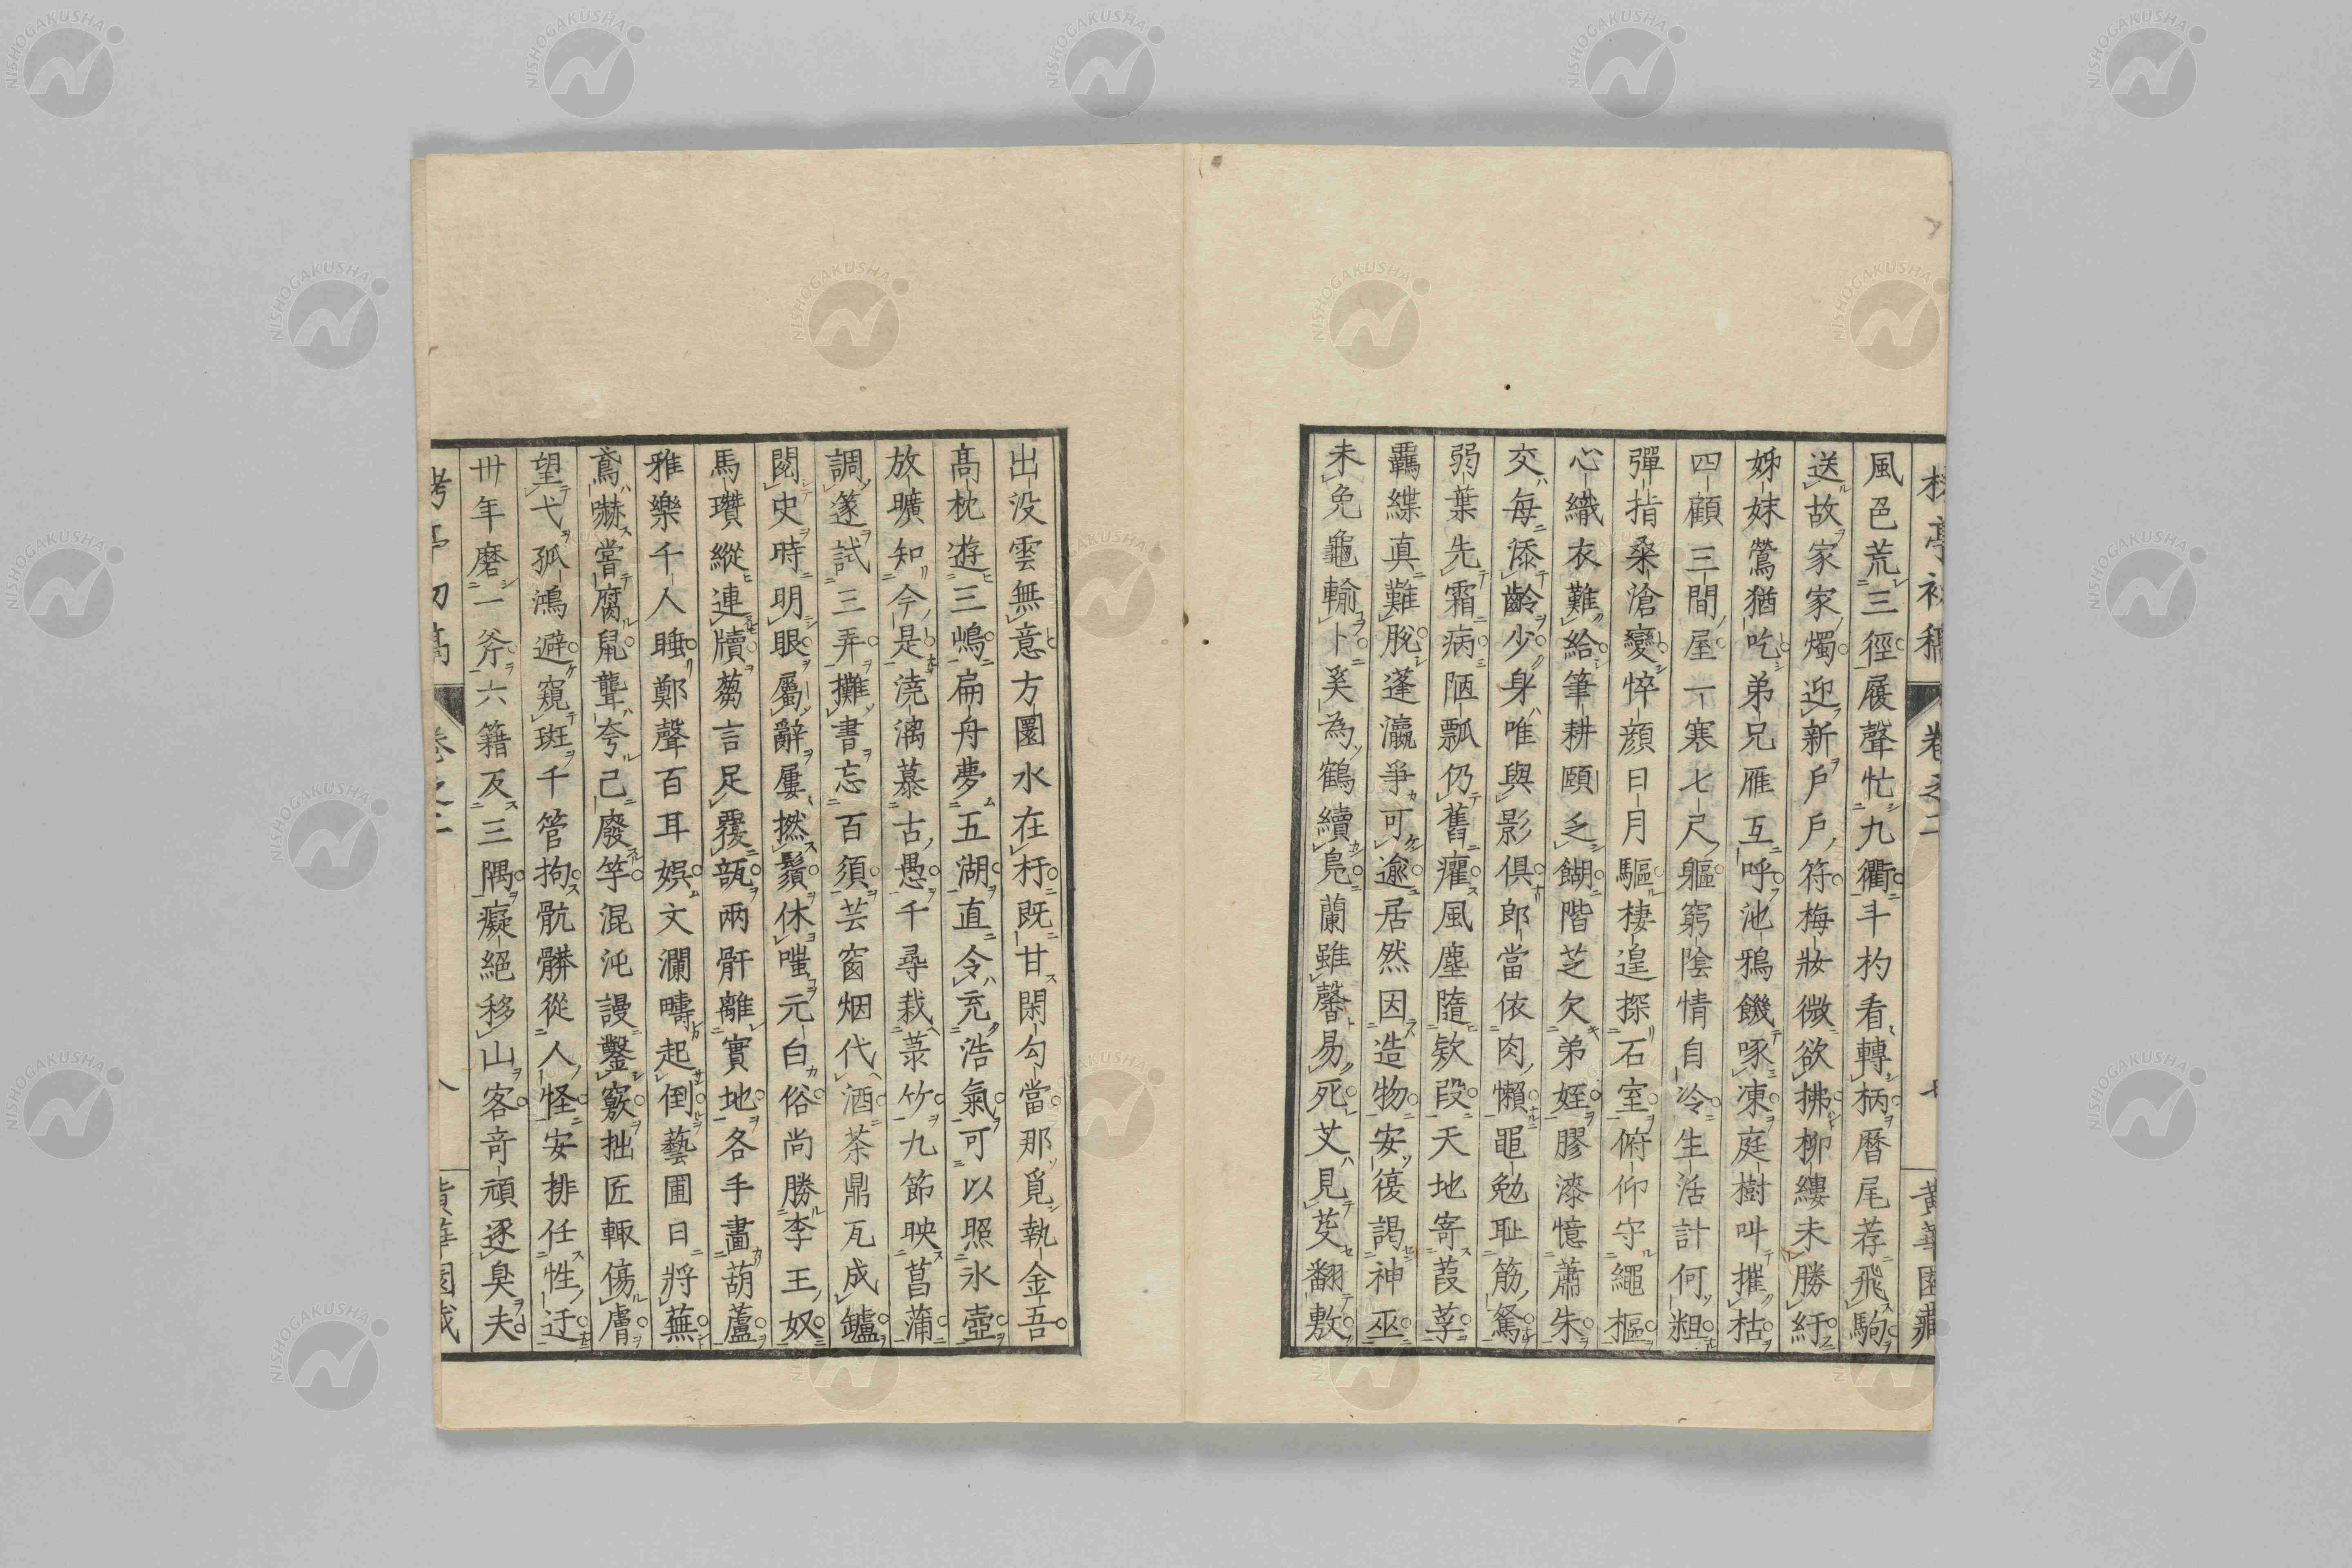 栲亭初稿 卷之二 七 黃華園藏
風色荒三徑履聲忙九衢斗杓看轉柄曆尾荐飛駒
送故家家燭迎新戶戶符梅妝微欲拂柳縷未勝紆
姊妹鶯猶吃弟兄雁互呼池鴉饑啄凍庭樹叫摧枯
四顧三間屋一寒七尺軀窮陰情自冷生活計何粗
彈指桑滄變悴顏日月驅棲遑探石室俯仰守繩樞
心織衣難給筆耕頤乏餬階芝欠弟姪膠漆憶蕭朱
交每添齡少身唯與影俱郎當依肉懶黽勉耻筋駑
弱葉先霜病陋瓢仍舊癯風塵隨欵段天地寄葭莩
羈緤真難脫蓬瀛爭可逾居然因造物安復謁神巫
未免龜輸卜奚為鶴續鳧蘭雖馨易死艾見芟翻敷
出沒雲無意方圜水在杅既甘閑勾當那覓執金吾
高枕遊三嶋扁舟夢五湖直令充浩氣可以照氷壺
放曠知今是澆漓慕古愚千尋栽菉竹九節映菖蒲
調邃試三弄攤書忘百須芸窗烟代酒茶鼎瓦成鑪
閱史時明眼屬辭屢撚鬚休嗤元白俗尚勝李王奴
馬瓚縱連牘蒭言足覆瓿兩骭離實地各手畫葫蘆
雅樂千人睡鄭聲百耳娛文瀾疇起倒藝圃日將蕪
鳶嚇當腐鼠聾夸己廢竽混沌謾鑿竅拙匠輒傷膚
望弋孤鴻避窺斑千管拘骯髒從人怪安排任性迂
卅年磨一斧六籍反三隅癡絕移山客奇頑逐臭夫
栲亭初稿 卷之二 八 黃華園藏